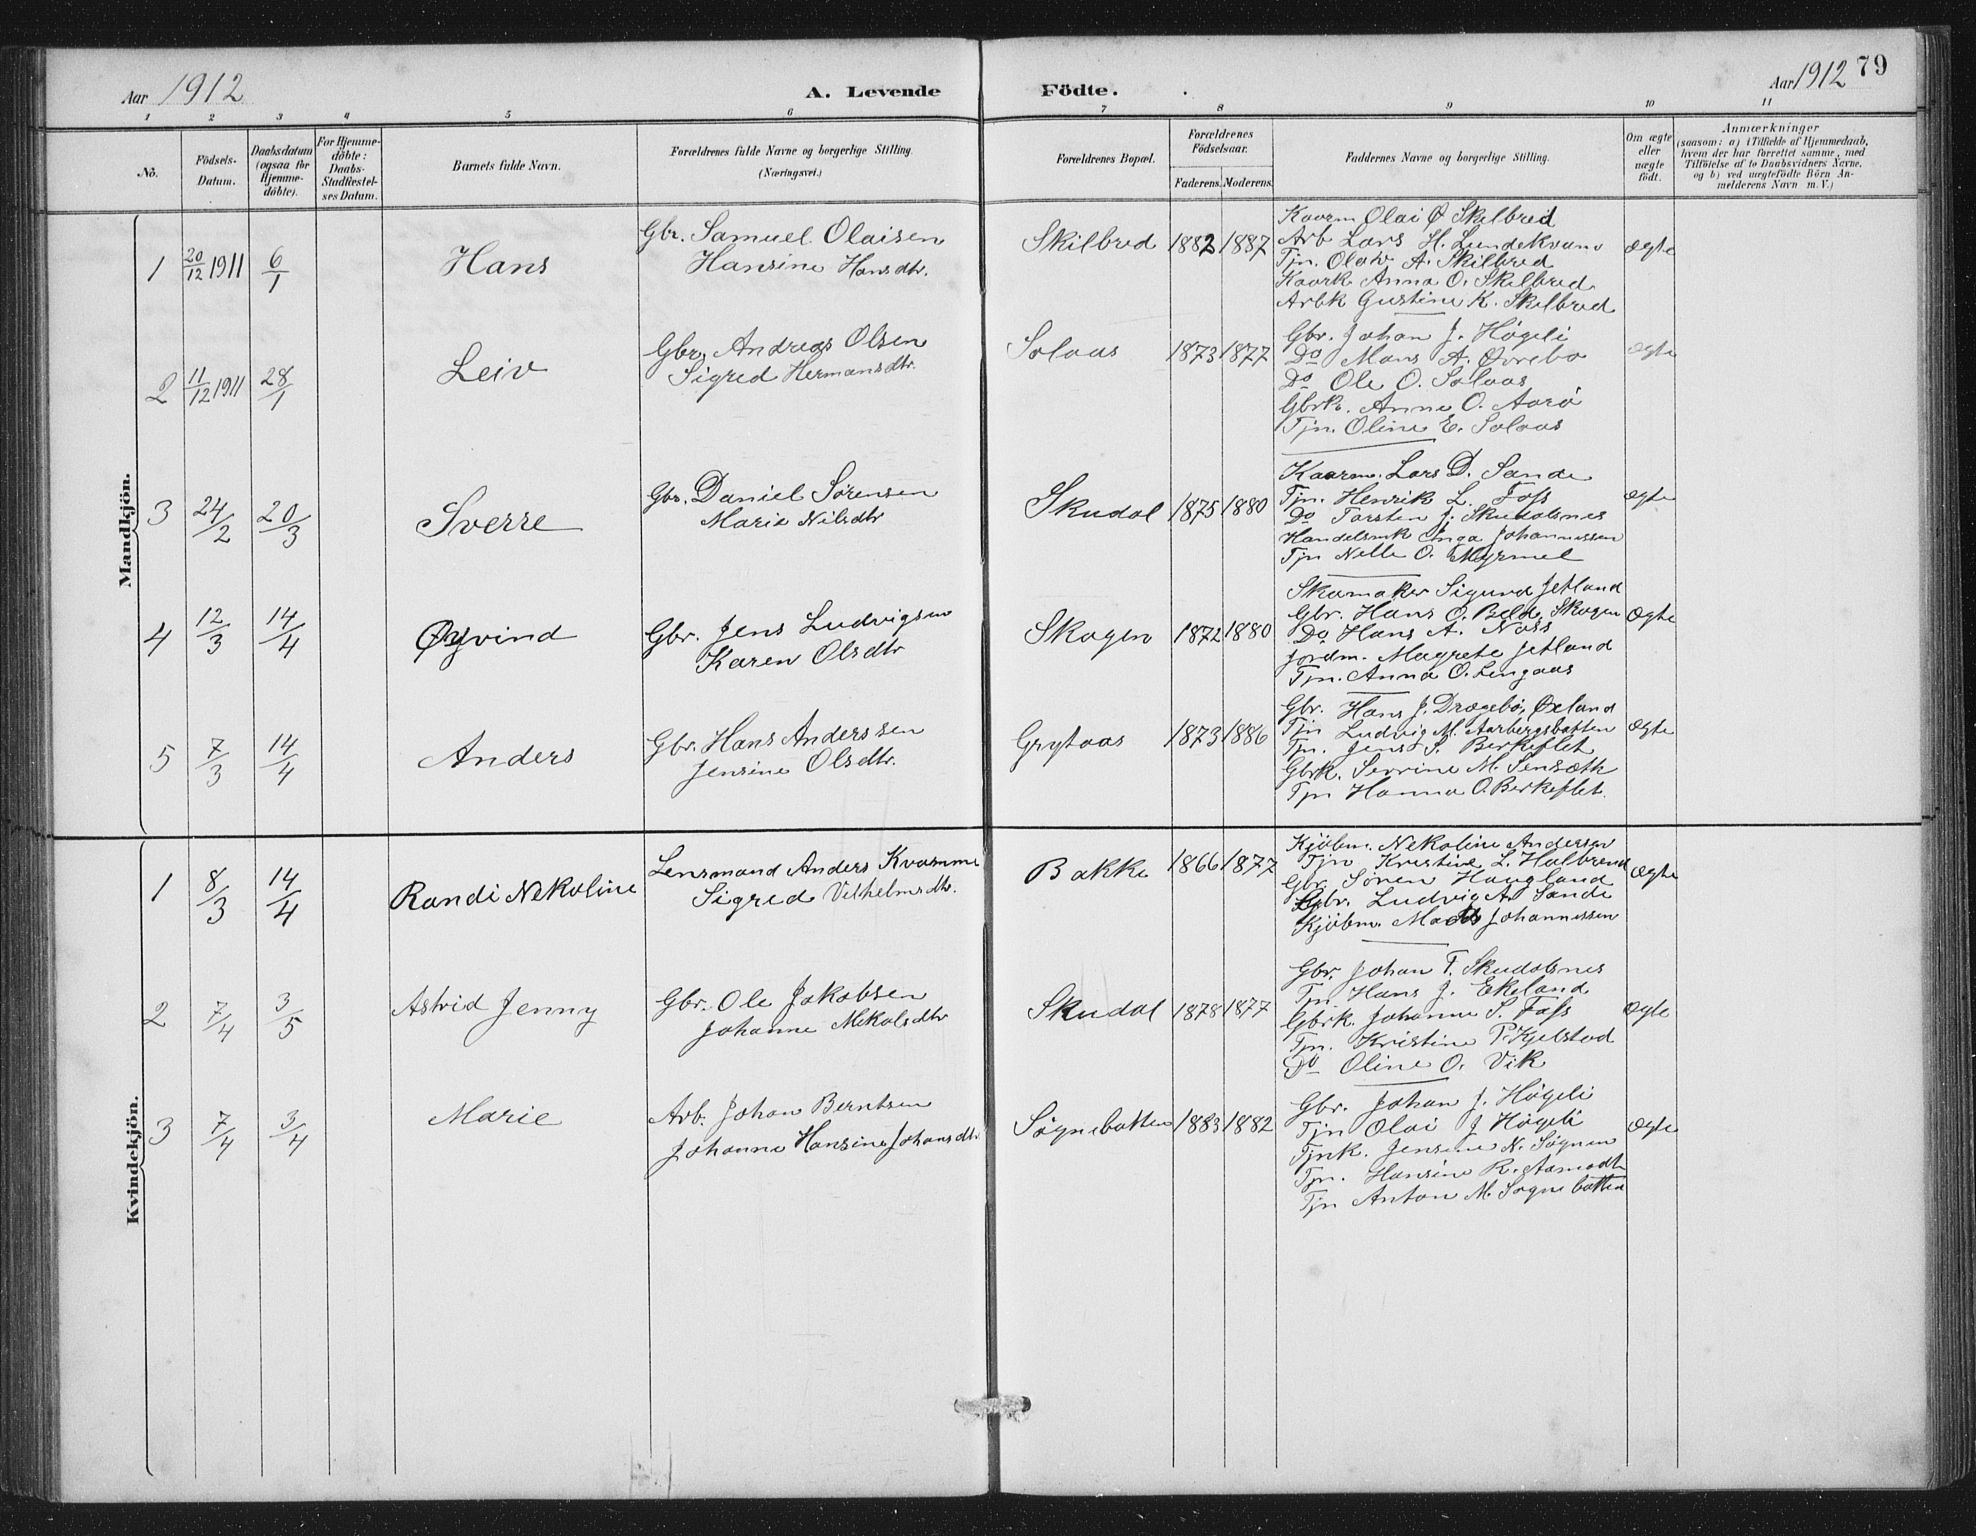 Aar 1912
A. Levende
Födte.
Aar 1912 79
1 2 3 4 5 6 7 8 9 10 11
No.
Födsels-
Datum.
Daabsdatum
(ogsaa for
Hjemme-
döbte).
For Hjemme-
döbte:
Daabs-
Stadfæstel-
ses Datum.
Barnets fulde Navn.
Forældrenes fulde Navne og borgerlige Stilling.
(Næringsvei.)
Forældrenes Bopæl.
Forældrenes
Födselsaar.
Faderens. Moderens.
Faddernes Navne og borgerlige Stilling.
Om ægte
eller
uægte
födt.
Anmærkninger
(saasom: a) i Tilfælde af Hjemmedaab,
hvem der har forrettet samme, med
Tilföielse af to Daabsvidners Navne.
og b) ved uægtefödte Börn An-
melderens Navn m. V.)
Mandkjön.
1 20/12 1911 6/1 Hans
Gbr. Samuel Olaisen
Hansine Hansdtr.
Skilbred 1882 1887
Kaarm Olai Ø Skilbred
Arb Lars H. Lundekvam
Tjn. Olav A. Skilbred
Kaark Anna O. Skilbred
Arbk Gustine K. Skilbred
Ægte
2 11/12 1911 28/1 Leiv
Gbr. Andreas Olsen
Sigred Hermansdtr.
Solaas 1873 1877
Gbr. Johan J. Høgeli
Do Mons A. Øvrebo
Do Ole O. Solaas
Gbrk. Anne O. Aarø
Tjn. Oline E. Solaas
Ægte
3 24/2 20/3 Sverre
Gbr. Daniel Sørensen
Marie Nilsdtr
Skudal 1875 1880
Kaarm. Lars D. Sande
Tjn. Henrik L. Foss
Do Torsten J. Skudalsnes
Handelsmk Inga Johannessen
Tjn Nelle O. Myrmel
Ægte
4 12/3 14/4 Øyvind
Gbr. Jens Ludvigsen
Karen Olsdtr
Skogen 1872 1880
Skomaker Sigurd Jetland
Gbr. Hans O. Beld, Skogen
Do Hans A. Noss
Jordm. Magrete Jetland
Tjn. Anna O. Lengaas
Ægte
5 7/3 14/4 Anders
Gbr. Hans Anderssen
Jensine Olsdtr.
Grytaas 1873 1886
Gbr. Hans J. Drægebø, Øxland
Tjn Ludvig M. Aarbergsbotten
Tjn. Jens S. Berkeflet
Gbrk. Serrine M. Senseth
Tjn Hanna O. Berkeflet.
Ægte
Kvindekjön.
1 8/3 14/4 Randi Nekoline
Lensmand Anders Kvamme
Sigred Vilhelmsdtr.
Bakke 1866 1877
Kjøbm. Nekoline Andersen
Tjn Kristine L. Halbrend
Gbr. Søren Haugland
Gbr. Ludvig A. Sande
Kjøbm. Mads Johannessen
Ægte
2 7/4 3/5 Astrid Jenny
Gbr. Ole Jakobsen
Johanne Mikalsdtr
Skudal 1878 1877
Gbr. Johan T. Skudalsnes
Tjn. Hans J. Ekeland
Gbrk. Johanne S. Foss
Tjn. Kristine P. Kjelstad
Do Oline O. Vik
Ægte
3 7/4 3/4 Marie
Arb. Johan Berntsen
Johanne Hansine Johansdtr.
Søgnebotten 1883 1882
Gbr. Johan J. Høgeli
Tjn Olai J Høgeli
Tjnk. Jensine N. Søgnen
Tjn. Hansine R. Aamodt
Tjn Anton M. Søgnebotten
Ægte